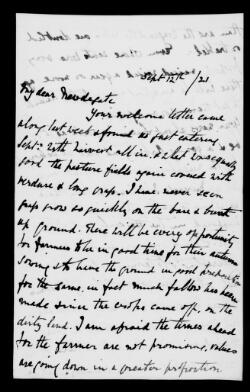 Sept 12th /21
My dear Newdegate
Your welcome letter came
along last week & found us just entering
Sept: with harvest all in. & what was equally
good the pasture fields again covered with
verdure & long grass. I have never seen
grass grow so quickly on the bare & burnt
up ground. There will be every opportunity
for farmers to be in good time for their autumn
sowing & to have the ground in good
for the same, in fact much fallow has been
made since the crops came off, on the
dirty land. I am afraid the times ahead
for the farmer are not promising, values
are going down in a greater proportion